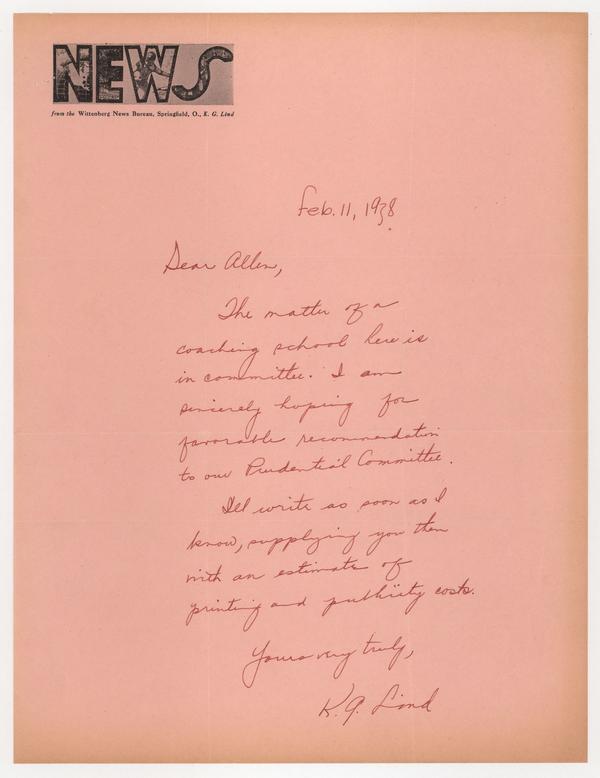 NEWS
from the Wittenberg News Bureau, Springfield, O., K. G. Lind
Feb. 11, 1938
Dear Allen,
The matter of a
coaching school here is
in committee. I am
sincerely hoping for
favorable recommendation
to our Prudential Committee.
I'll write as soon as I
know, supplying you then
with an estimate of
printing and publicity costs.
Yours very truly,
K. G. Lind